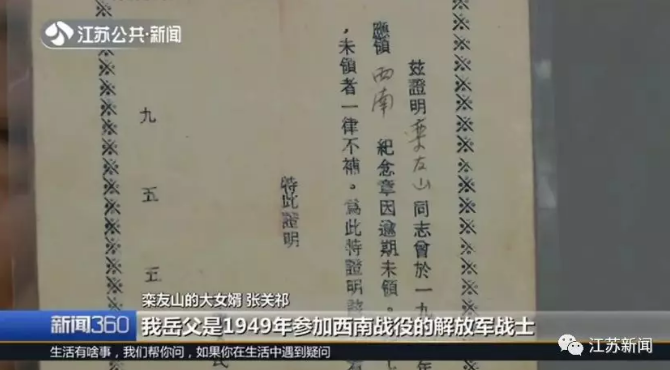 江苏公共·新闻
兹證明栾友山同志曾於一九
應領西南紀念章因逾期未領。
，未領者一律不補。爲此特證明
特此證明
九五五
栾友山的大女婿 张关祁
新闻360
我岳父是1949年参加西南战役的解放军战士
生活有啥事，我们帮你问，如果你在生活中遇到疑问
江苏新闻